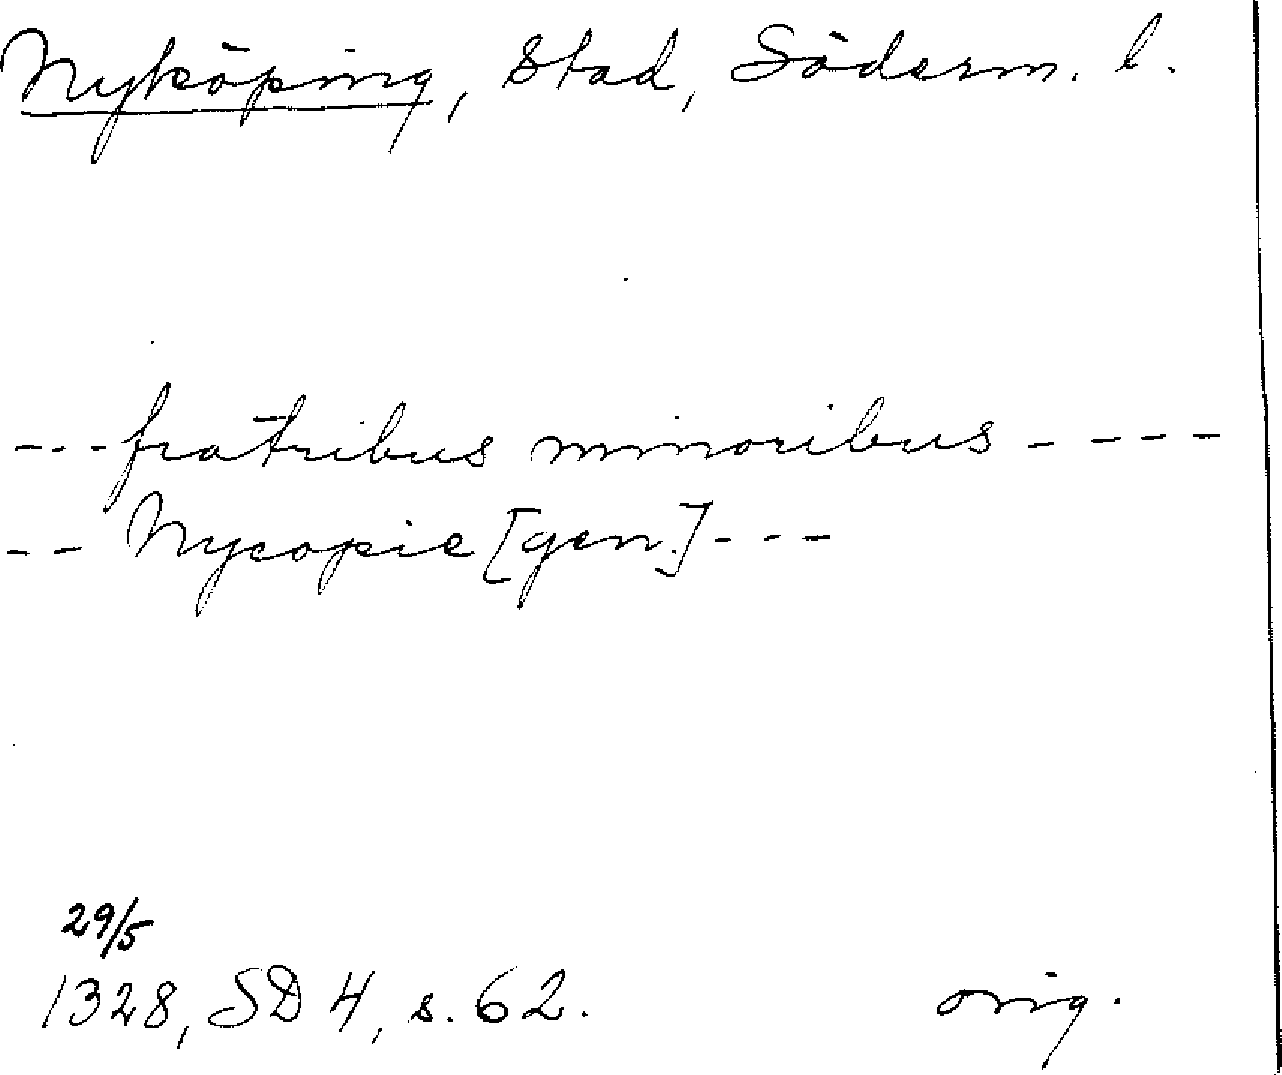 Nyköping, Stad, Söderm. l.
---fratribus minoribus ----
-- Nycopie [gen.]---
29/5
1328, SD 4, s. 62. orig.